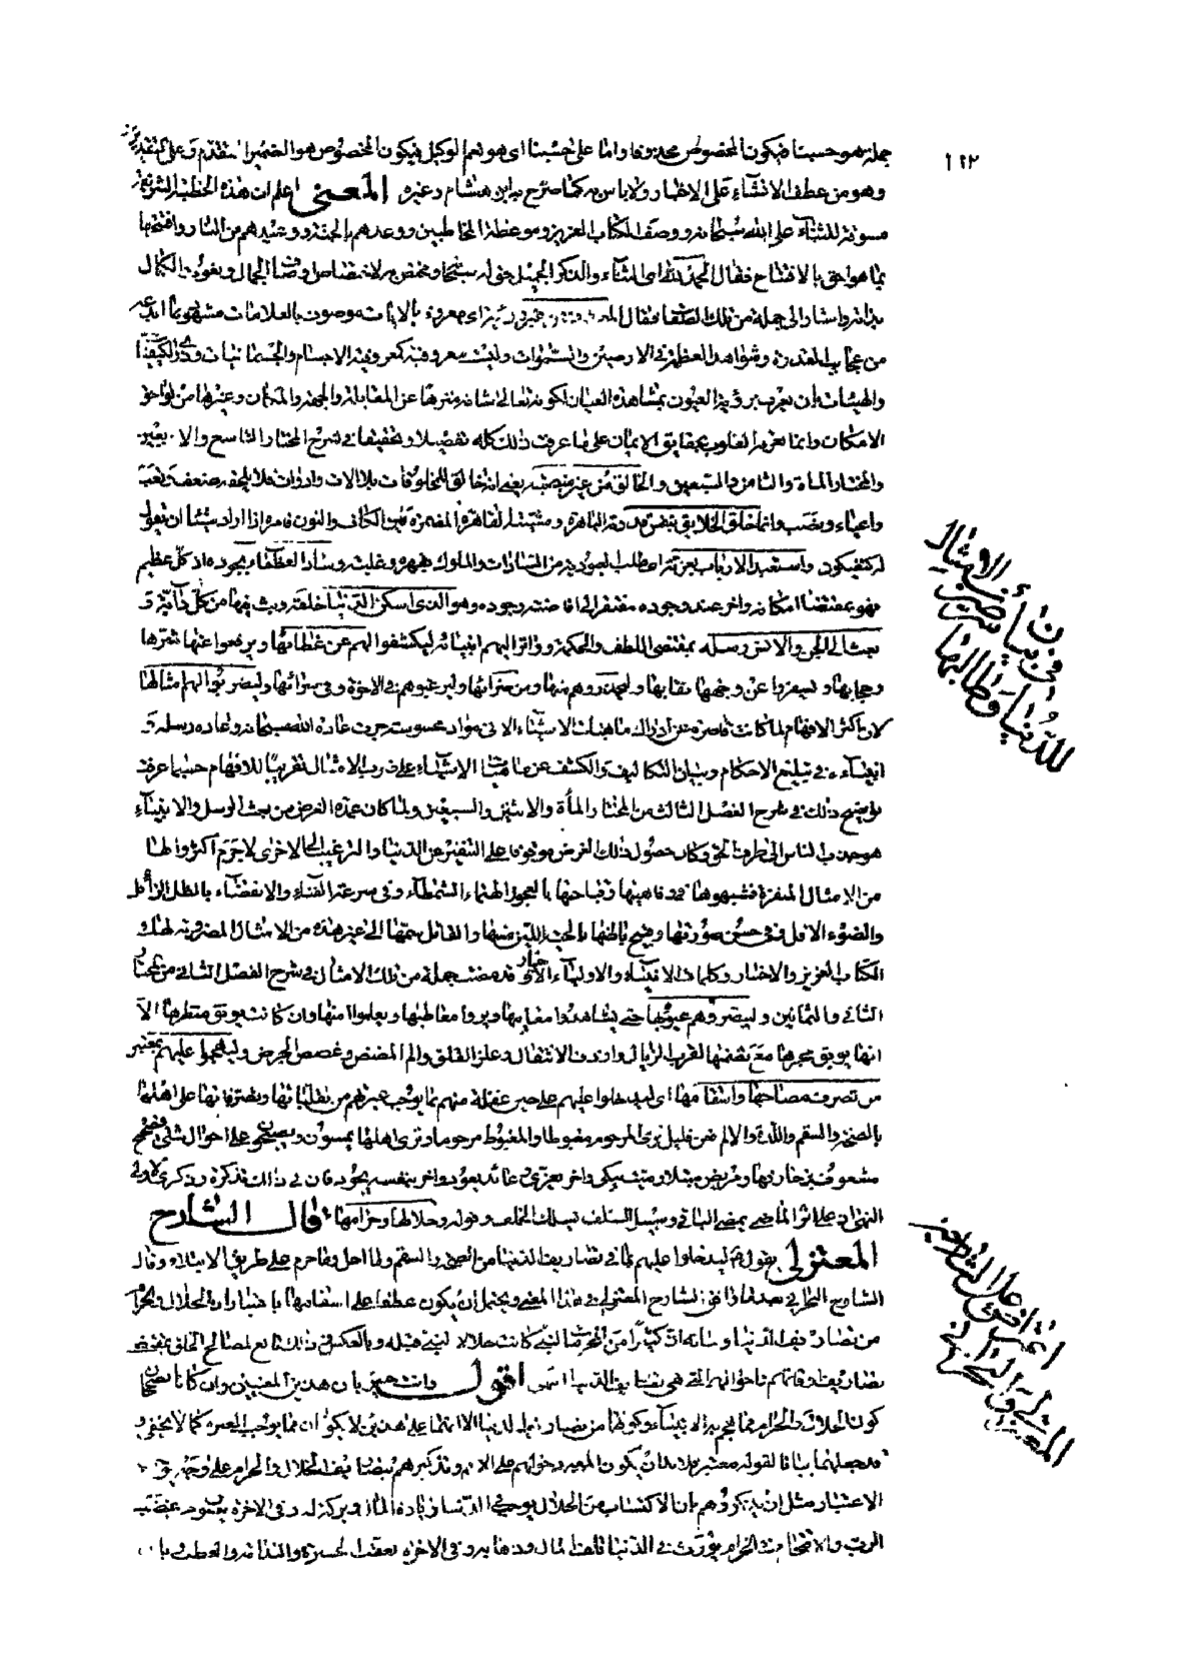 ١٢٢
جملة هو حسبنا فيكون المخصوص محذوفا واما على حسبنا اى هو نعم الوكيل فيكون المخصوص هو الضمير المتقدم وعلى
وهو من عطف الانشاء على الاظهار ولا باس به كما صرح به ابن هشام وغيره المعنى اعلم ان هذه الخطبة الشريفة
مسوقة للثناء على الله سبحانه ووصف الكتاب العزيز وموعظة المخاطبين ووعدهم بالجنة ووعيدهم من النار وافتتحها
بما هو احق بالافتتاح فقال الحمد لله اى الثناء والذكر الجميل حق له سبحانه ومختص به لاختصاص اوصاف الجمال ونعوت الكمال
بذاته واشار الى جملة من تلك الصفات فقال المعروف من غير رؤية اى معروف بالايات موصوف بالعلامات مشهود بما ابدعه
من عجايب القدرة وشواهد العظمة فى الارضين والسموات وليست معروفيته كمعروفية الاجسام والجسمانيات وذوى الكيفيات
والهيئات بان يعرف برؤية العيون بمشاهدة العيان لكونه تعالى شانه منزها عن المقابلة والجهة والمكان وغيرها من لواحق
الامكان وانما تعرفه القلوب بحقايق الايمان على ما عرفت ذلك كله تفصيلا وتحقيقا فى شرح المختار التاسع والاربعين
والمختار المأة والثامن والسبعين والخالق من غير منصبة يعنى انه خالق للمخلوقات بلا الات وادوات فلا يلحقه ضعف وتعب
واعياء ونصب وانما خلق الخلايق بقدرته الباهرة ومشيته القاهرة المضمرة بين الكاف والنون فامره اذا اراد شيئا ان يقول
له كن فيكون واستعبد الارباب بعزته اى طلب العبودية من السادات والملوك بقهره وغلبته وساد العظماء بجوده اذ كل عظيم
فهو بمقتضا امكانه واخر عند وجوده مفتقر الى افاضته وجوده وهو الذى اسكن الدنيا خلقه وبث فيها من كل دابة و
بعث الى الجن والانس رسله بمقتضى اللطف والحكمة وواتر اليهم انبيائه ليكشفوا لهم عن غطائها ويرفعوا عنها سترها
وحجابها وليسفروا عن وجهها نقابها وليحذروهم منها ومن ضرائها وليرغبوهم فى الاخرة وفى سرائها وليضربوا لهم امثالها
لان اكثر الافهام لما كانت قاصرة عن ادراك ماهيات الاشياء الا فى مواد محسوسة جرت عادة الله سبحانه وعادة رسله و
انبيائه فى تبليغ الاحكام وبيان التكاليف والكشف عن ماهيات الاشياء على ضرب الامثال تقريبا للافهام حسبما عرفت
توضيح ذلك فى شرح الفصل الثالث من المختار المأة والاثنين والسبعين ولما كان عمدة الغرض من بعث الرسل والانبياء
هو جذب الناس الى طرف الحق وكان حصول ذلك الغرض موقوفا على التنفير عن الدنيا والترغيب الى الاخرى لا جرم اكثروا لها
من الامثال المنفرة فشبهوها فى وقبا حتها بالعجوز الهتماء الشمطاء وفى سرعة الفناء والانقضاء بالظل الزائل
والضوء الافل وفى حسن صورتها وقبح باطنها بالحية اللين مسها والقاتل سمها الى غير هذه من الامثال المضروبة لها فى
الكتاب العزيز والاخبار وكلمات الانبياء والاولياء الاخيار وقد مضت جملة من تلك الامثال فى شرح الفصل الثانى من المختار
الثانى والثمانين وليبصروهم عيوبها حتى يشاهدوا معايبها ويروا مغالطتها ويعلموا انها وان كانت يونق منظرها الا
انها يوبق مخبرها مع تضمنها لقرب الزيال وازوف الانتقال وعلز القلق والم المضض وغصص الجرض وليهجموا عليهم بمعتبر
من تصرف مصاحها واسقامها اى ليدخلوا عليهم على حين غفلة منهم بما يوجب عبرتهم من تقلباتها وتصرفاتها على اهلها
بالصحة والسقم واللذة والالم فعن قليل ترى المرحوم مغبوطا والمغبوط مرحوما وترى اهلها يمسون ويصبحون على احوال شتى
مشعوف بزخارفها ومريض مبتلا وميت يبكى واخر يعزى وعائد يعود واخر بنفسه يجود فان فى ذلك تذكرة وذكرى لاولى
النهى اذ على اثر الماضى يمضى الباقى وسبيل السلف يسلك الخلف وقوله وحلالها وحرامها قال الشارح
المعتزلى يقول ليدخلوا عليهم بما فى تصاريف الدنيا من الصحة والسقم وما احل وما حرم على طريق الابتلاء وقال
الشارح البحرانى بعد ما وافق الشارح المعتزلى فى هذا المعنى ويحتمل ان يكون عطفا على اسقامها باعتبار ان الحلال والحرام
من تصاريف الدنيا وبيانه ان كثيرا من المحرمات لنبى كانت حلالا لنبى قبله وبالعكس وذلك تابع لمصالح الخلق بمقتضى
تصاريف اوقاتهم واحوالهم التى هى تصاريف الدنيا انتهى اقول وانت خبير بان هذين المعنيين وان كانا يصححان
كون الحلال والحرام مما يهجم به الانبياء وكونهما من تصاريف الدنيا الا انهما على هذين لا يكونان مما يوجب العبرة كما لا يخفى و
قد جعلهما بيانا لقوله معتبر فلا بد ان يكون المراد دخولهم على الامة وتذكيرهم بتصاريف الحلال والحرام على وجه
الاعتبار مثل ان يذكروهم بان الاكتساب من الحلال يوجب فى الدنيا زيادة المال وبركته وفى الاخرة
الرب والاقتحام فى الحرام يورث فى الدنيا تلف المال وذهابه وفى الاخرة يعقب الحسرة والندامة
فى بيان ضرب الامثال
للدنيا وظالها
اعتراض على الشارحين
المعتزلى والبحرانى